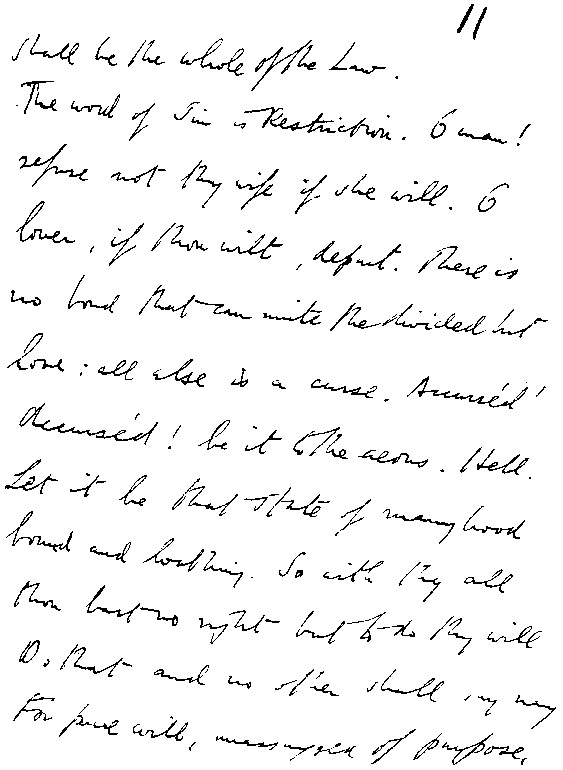 11
shall be the whole of the Law.
The word of Sin is Restriction. O man!
refuse not thy wife if she will. O
lover, if thou wilt, depart. There is
no bond that can unite the divided but
love: all else is a curse. Accurséd!
Accurséd! be it to the aeons. Hell.
Let it be that state of manyhood
bound and loathing. So with thy all
thou hast no right but to do thy will
Do that and no other shall say nay
For pure will, unassuaged of purpose,